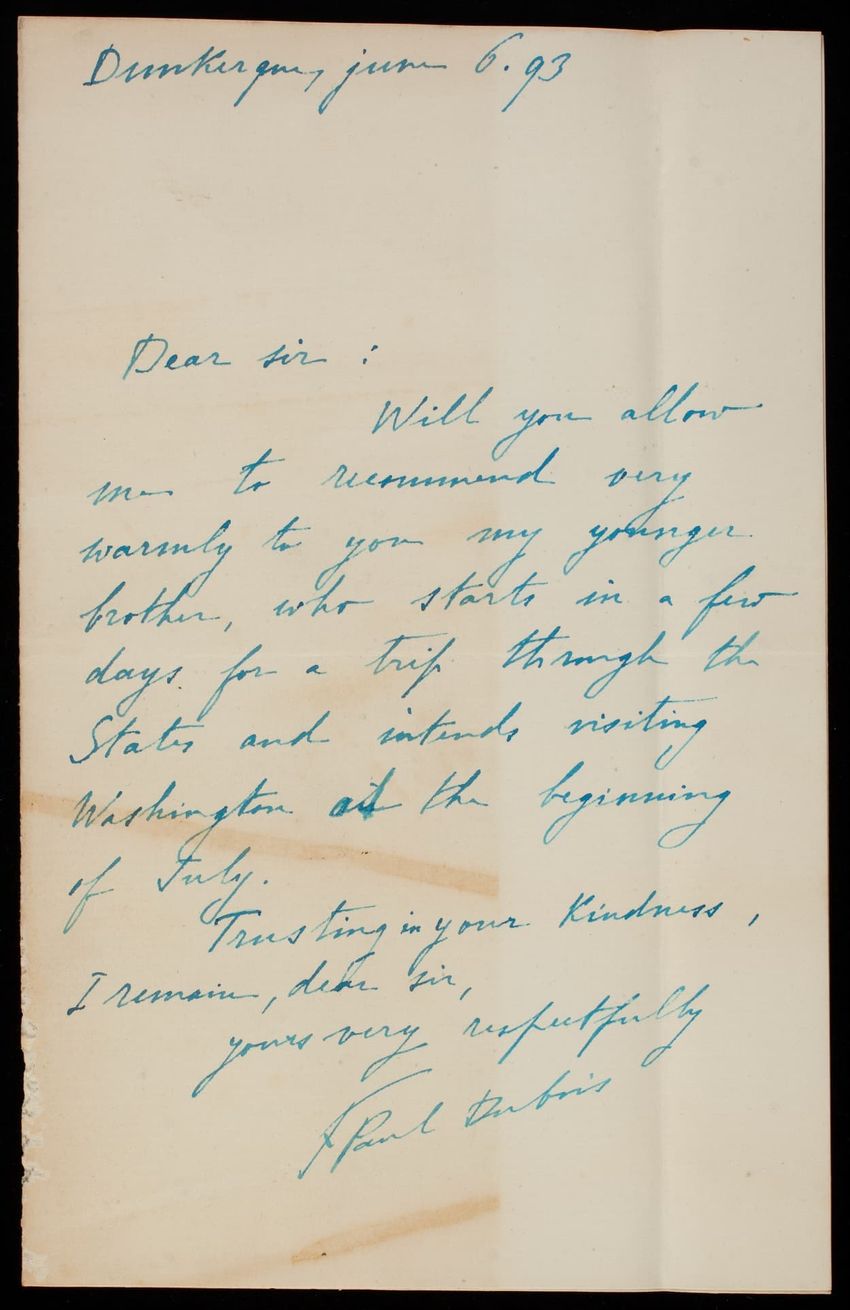 Dunkerque, june 6. 93
Dear sir :
Will you allow
me to recommend very
warmly to you my younger
brother, who starts in a few
days for a trip through the
States and intends visiting
Washington at the beginning
of July.
Trusting in your Kindness,
I remain, dear sir,
yours very respectfully
Paul Dubois